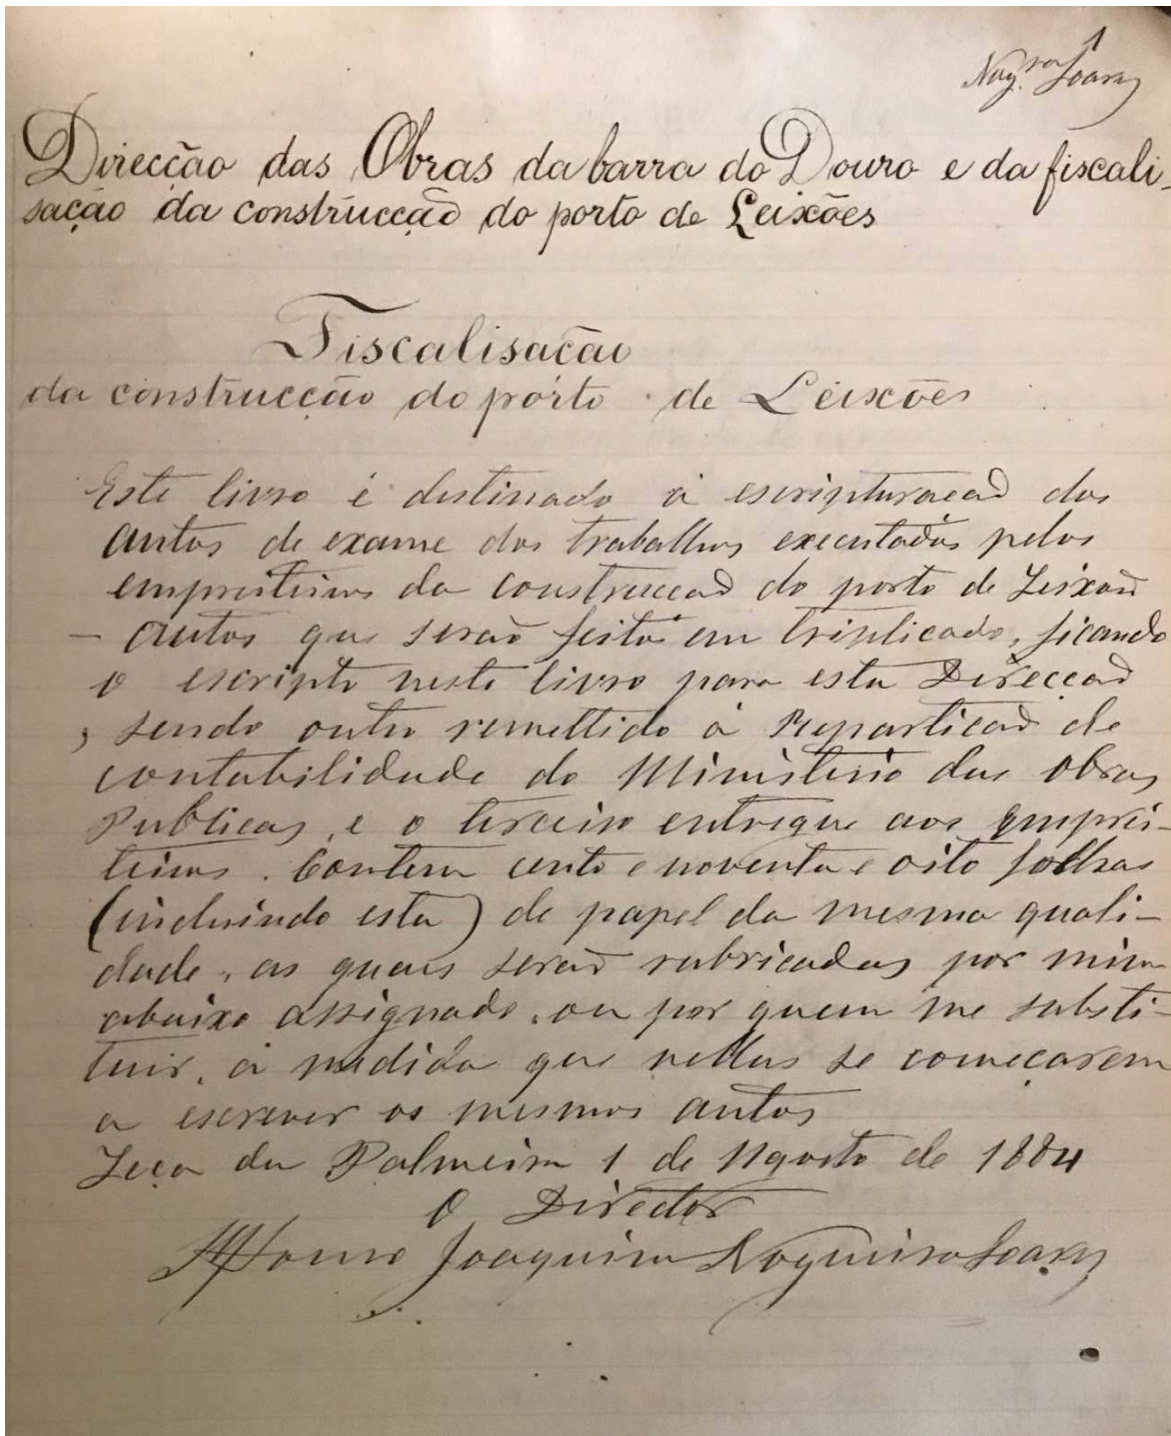 1
Nog.ra Soares
Direcção das Obras da barra do Douro e da fiscali-
sação da construcção do porto de Leixões
Fiscalisação
da construcção do porto de Leixões
Este livro é destinado á escripturacaõ dos
autos de exame dos trabalhos executados pelos
empreiteiros da construccaõ do porto de Leixões
– autos que seraõ feitos em triplicado, ficando
o escripto neste livro para esta Direccaõ
, sendo outro remettido á Reparticaõ de
contabilidade do Ministerio das Obras
Publicas, e o terceiro entregue aos Emprei-
teiros. Contem cento e noventa e oito folhas
(incluindo esta) de papel da mesma quali-
dade, as quaes seraõ rubricadas por mim
abaixo assignado, ou por quem me substi-
tuir, á medida que nellas se começarem
a escrever os mesmos autos
Leça da Palmeira 1 de Agosto de 1884
O Director
Affonso Joaquim Nogueira Soares